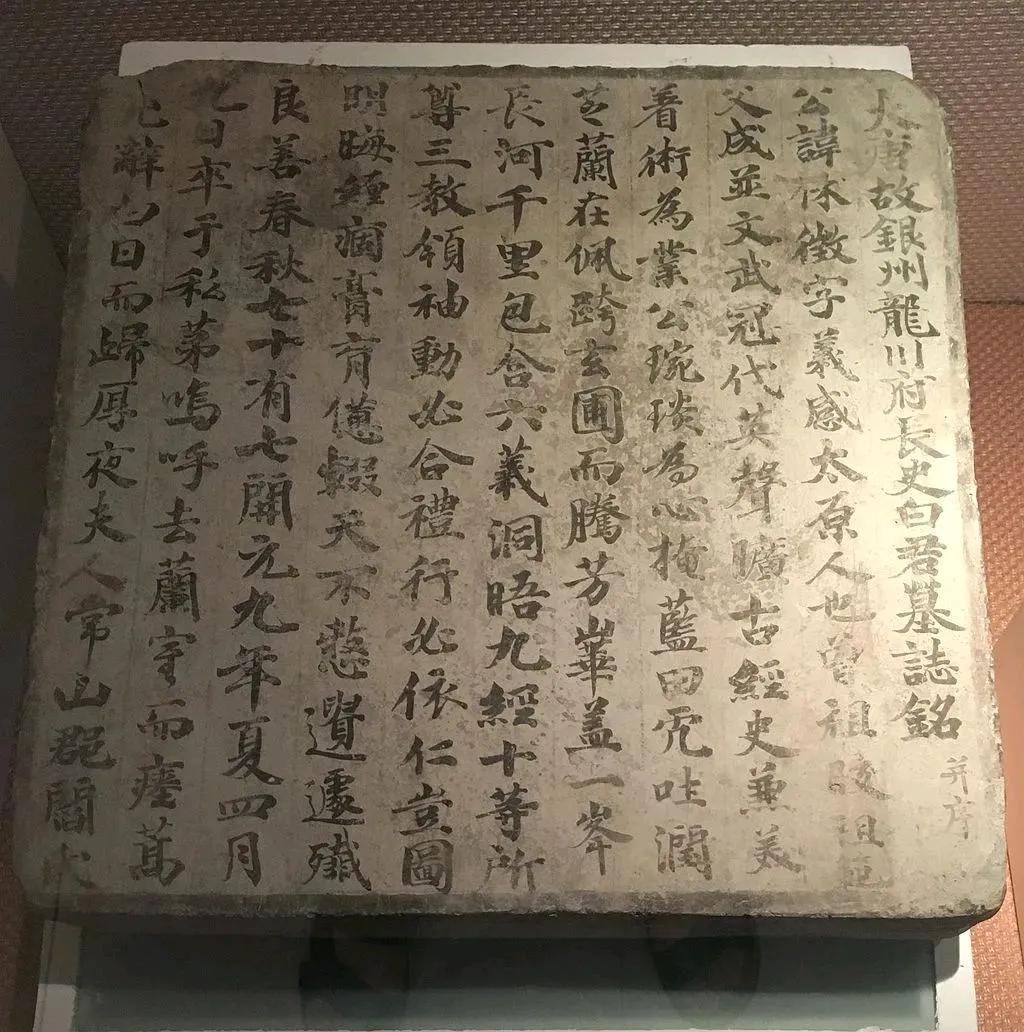 大唐故銀州龍川府長史白君墓誌銘 并序
公諱休徵字義感太原人也曾祖陵祖
父成並文武冠代英聲曠古經史兼美
著術為業公琬琰為心掩藍田而吐潤
芝蘭在佩跨玄圃而騰芳崋蓋一峯
長河千里包含六義洞晤九經十等所
尊三教領袖動必合禮行必依仁豈圖
明晦纏痾膏肓僊輟天不憗遺遽殲
良善春秋七十有七開元九年夏四月
日卒于私苐嗚呼去蘭室而瘞萬
辭白日而歸厚夜夫人常山郡閻